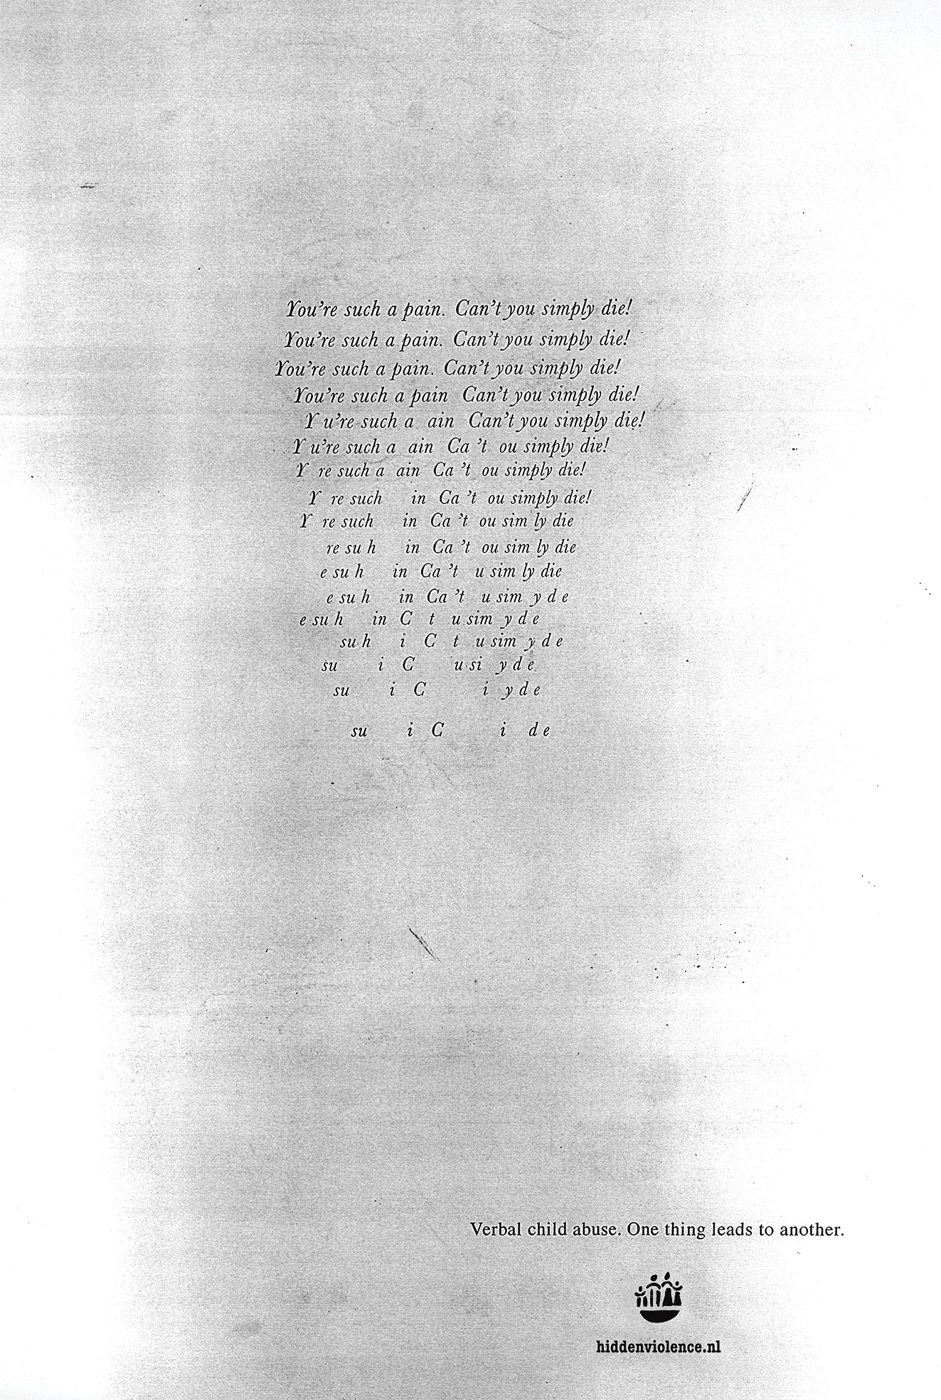 You're such a pain. Can't you simply die!
You're such a pain. Can't you simply die!
You're such a pain. Can't you simply die!
You're such a pain  Can't you simply die!
Y u're such a  ain  Can't you simply die!
Y u're such a  ain  Ca 't  ou simply die!
Y  re such a  ain  Ca 't  ou simply die!
Y  re such    in  Ca 't  ou simply die!
Y  re such    in  Ca 't  ou sim ly die
re su h    in  Ca 't  ou sim ly die
e su h    in  Ca 't   u sim ly die
e su h    in  Ca 't   u sim  y d e
e su h    in  C  t   u sim  y d e
su h    i  C  t   u sim  y d e
su    i  C     u si  y d e
su    i  C      i  y d e
su    i  C      i   d e
Verbal child abuse. One thing leads to another.
hiddenviolence.nl